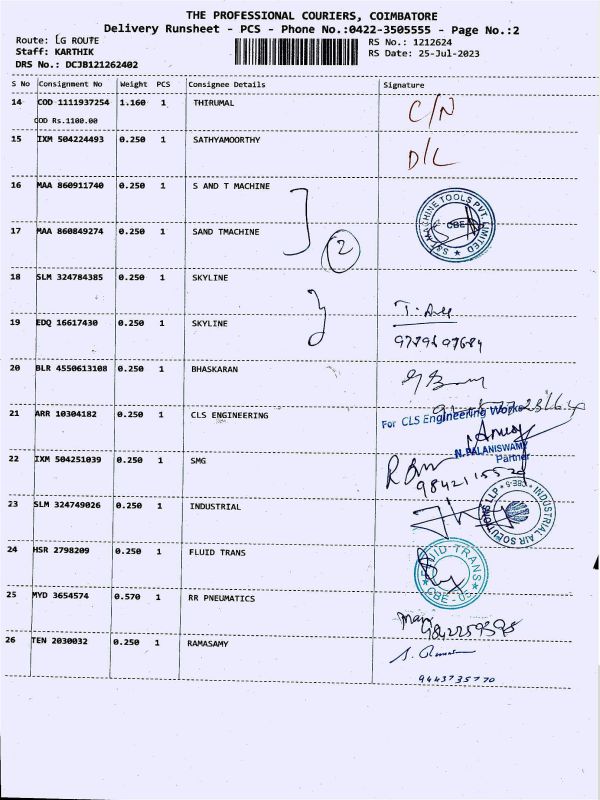 THE PROFESSIONAL COURIERS, COIMBATORE
Delivery Runsheet - PCS - Phone No.:0422-3505555 - Page No.:2
Route: LG ROUTE
RS No.: 1212624
Staff: KARTHIK
RS Date: 25-Jul-2023
DRS No.: DCJB121262402
S No Consignment No Weight PCS Consignee Details Signature
14 COD 1111937254 1.160 1 THIRUMAL C/N
COD Rs.1100.00
15 IXM 504224493 0.250 1 SATHYAMOORTHY D/L
16 MAA 860911740 0.250 1 S AND T MACHINE
S&T MACHINE TOOLS PVT. LIMITED
CBE
17 MAA 860849274 0.250 1 SAND TMACHINE
2
18 SLM 324784385 0.250 1 SKYLINE
19 EDQ 16617430 0.250 1 SKYLINE
20 BLR 4550613108 0.250 1 BHASKARAN
21 ARR 10304182 0.250 1 CLS ENGINEERING
For CLS Engineering Works
N.PALANISWAMY
Partner
22 IXM 504251039 0.250 1 SMG
23 SLM 324749026 0.250 1 INDUSTRIAL
INDUSTRIAL AIR SOLUTIONS LLP
24 HSR 2798209 0.250 1 FLUID TRANS
FLUID TRANS
25 MYD 3654574 0.570 1 RR PNEUMATICS
26 TEN 2030032 0.250 1 RAMASAMY
9443735770